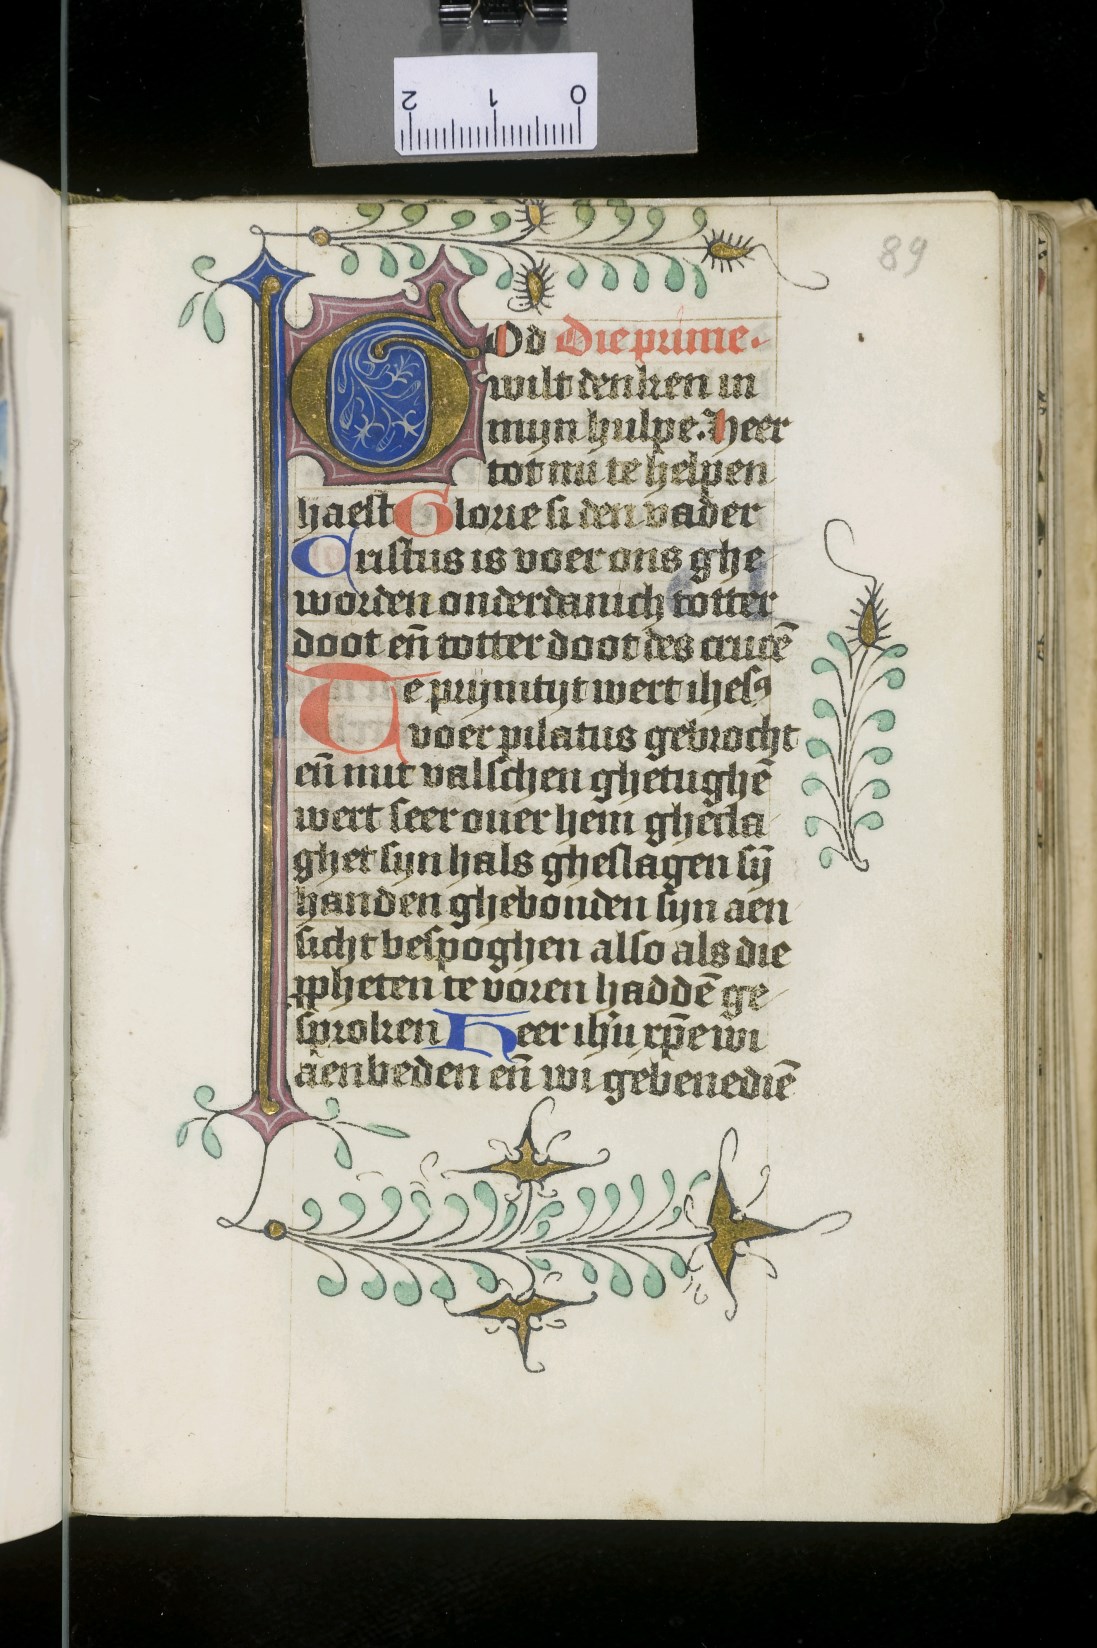 2 1 0
89
GOd Die prime.
wilt denken in
mijn hulpe. Heer
tot mi te helpen
haest Glorie si den vader
Cristus is voer ons ghe
worden onderdanich totter
doot en̄ totter doot des crucē
Te prijmtijt wert ihesꝰ
voer pilatus gebrocht
en̄ mit valschen ghetughē
wert seer ouer hem ghecla
ghet sijn hals gheslagen sij̄
handen ghebonden sijn aen
sicht bespoghen also als die
ꝓpheten te voren haddē ge
sproken Heer ihū xp̄e wi
aenbeden en̄ wi gebenediē